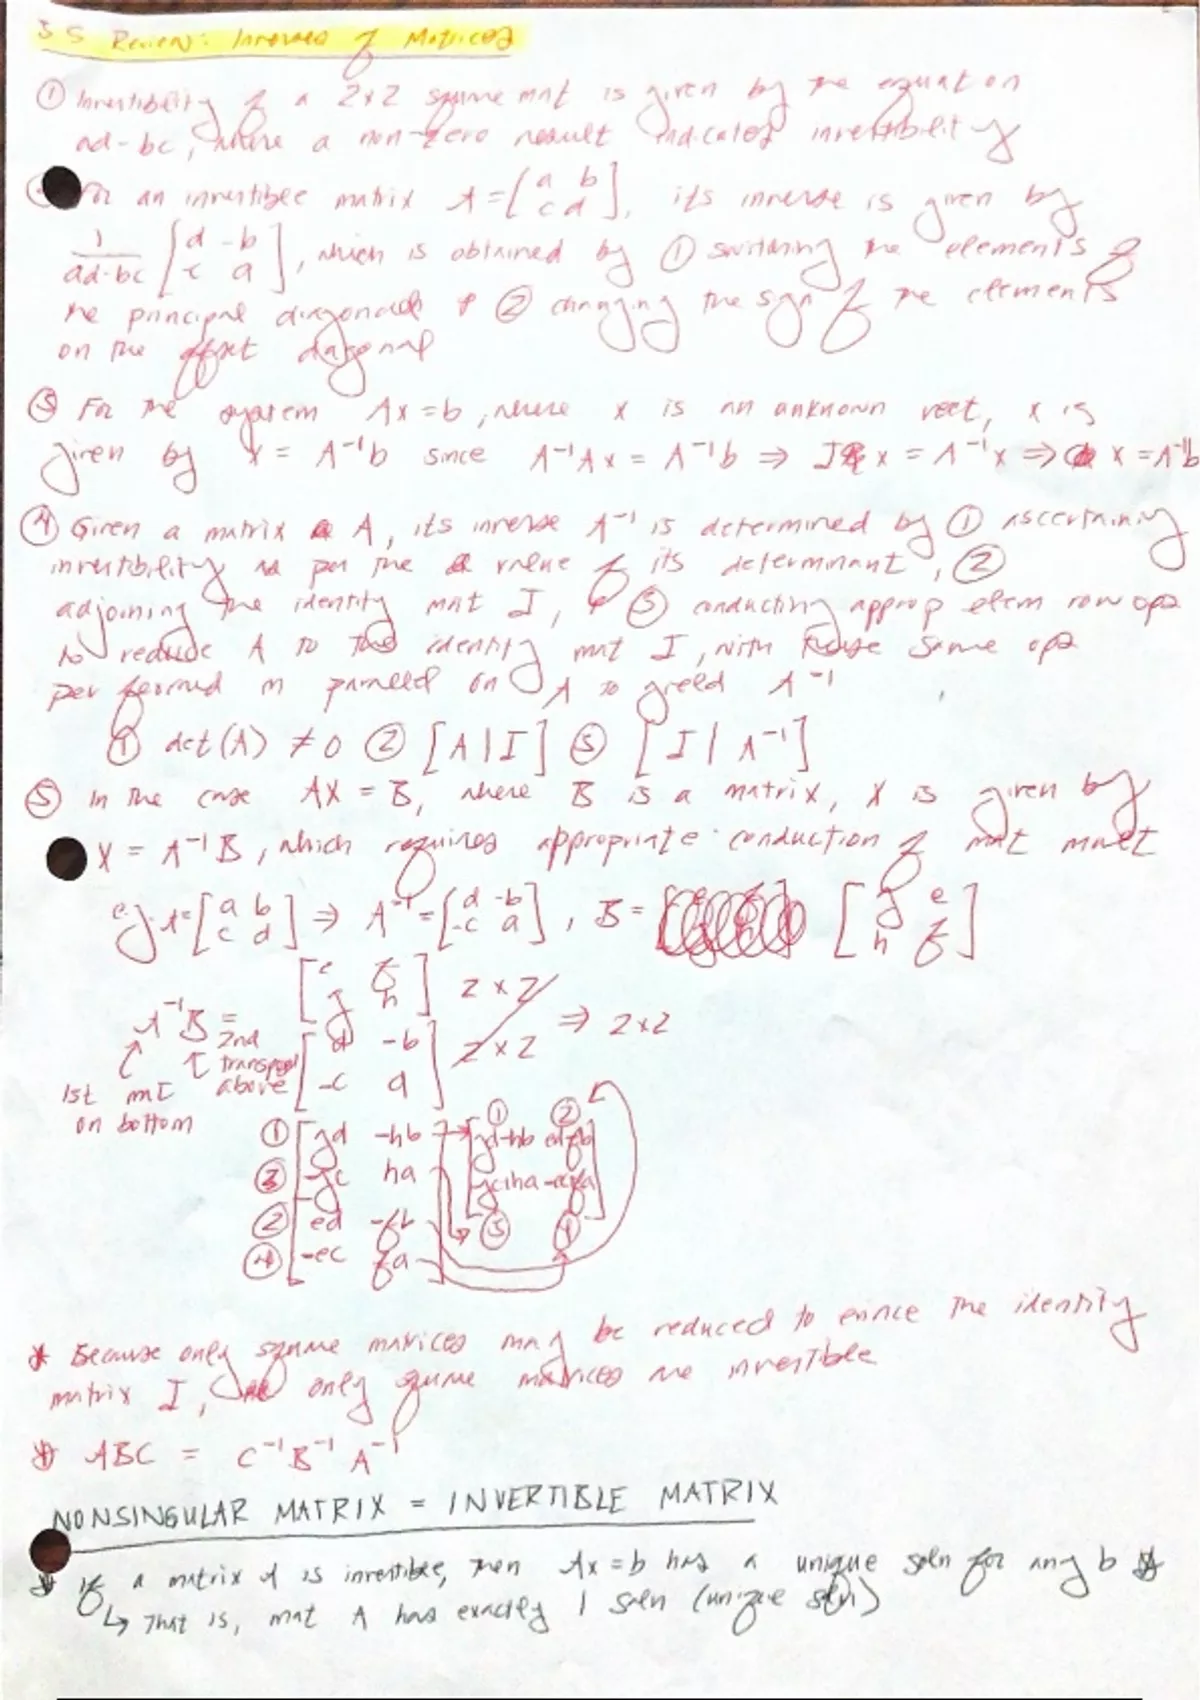 3.5 Review: Inverses of Matrices
① Invertibility of a 2x2 square mat is given by the equation
ad-bc, where a non-zero result indicates invertibility
for an invertible matrix A = [a b c d], its inverse is given by
1/ad-bc [d -b -c a], which is obtained by ① switching the elements of
the principal diagonal & ② changing the sgn of the elements
on the offset diagonal
③ For the system Ax = b, where x is an unknown vect, x is
given by x = A⁻¹b since A⁻¹Ax = A⁻¹b ⇒ I x = A⁻¹x ⇒ x = A⁻¹b
④ Given a matrix A, its inverse A⁻¹ is determined by ① ascertaining
invertibility as per the value of its determinant, ②
adjoining the identity mat I, & ③ conducting approp elem row ops
to reduce A to the identity mat I, with these same ops
performed in parallel on A to yield A⁻¹
① det(A) ≠ 0 ② [A|I] ③ [I|A⁻¹]
⑤ In the case AX = B, where B is a matrix, X is given by
X = A⁻¹B, which requires appropriate conduction of mat mult
e.g. A = [a b c d] ⇒ A⁻¹ = [d -b -c a], B = [g e h f]
[e f g h] 2 x 2
A⁻¹B = ⇒ 2x2
2nd [d -b -c a] 2 x 2
transposed
above
1st mat
on bottom
① ②
① [gd -hb [gd-hb ed-fb]
③ -gc ha -gc+ha -ec+fa]
② ed -fb ③ ④
④ -ec fa]
* Because only square matrices may be reduced to evince the identity
matrix I, only square matrices are invertible
* ABC = C⁻¹B⁻¹A⁻¹
NONSINGULAR MATRIX = INVERTIBLE MATRIX
* If a matrix A is invertible, then Ax = b has a unique soln for any b *
↳ That is, mat A has exactly 1 soln (unique soln)